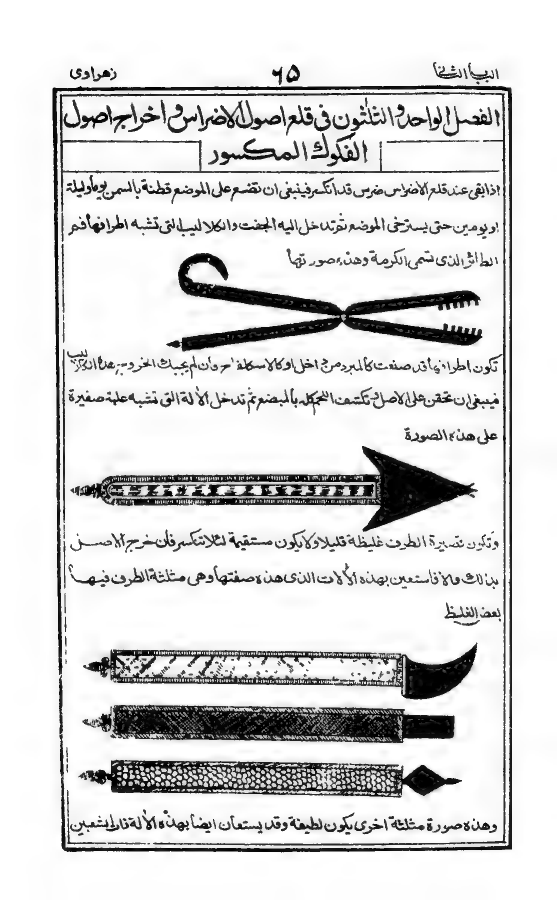 الباب الثانى ٦٥ زهراوى
الفصل الواحد والثلثون فى قلع اصول الاضراس واخراج اصول
الفكوك المكسور
اذا بقى عند قلع الاضراس ضرس قد انكسر فينبغى ان تضع على الموضع قطنة بالسمن يوما وليلة
او يومين حتى يسترخى الموضع ثم تدخل اليه الجفت والكلاليب التى تشبه اطرافها فم
الطائر الذى تسمى الكرمة وهذه صورتها
تكون اطرافها قد صنعت كالمبرد من داخل او كالاسكلفاج فان لم يجبك الخروج بهذه الكلاليب
فينبغى ان تحفن على الاصل وتكشف اللحم كله بالمبضع ثم تدخل الالة التى تشبه عتلة صغيرة
على هذه الصورة
وتكون قصيرة الطرف غليظة قليلا ولا يكون مستقيمة لئلا تنكسر فان خرج الاصل
بذلك والا فاستعين بهذه الالات الذى هذه صفتها وهى مثلثة الطرف فيها
بعض الغلظ
وهذه صورة مثلثة اخرى يكون لطيفة وقد يستعان ايضا بهذه الالة ذات الشعبتين